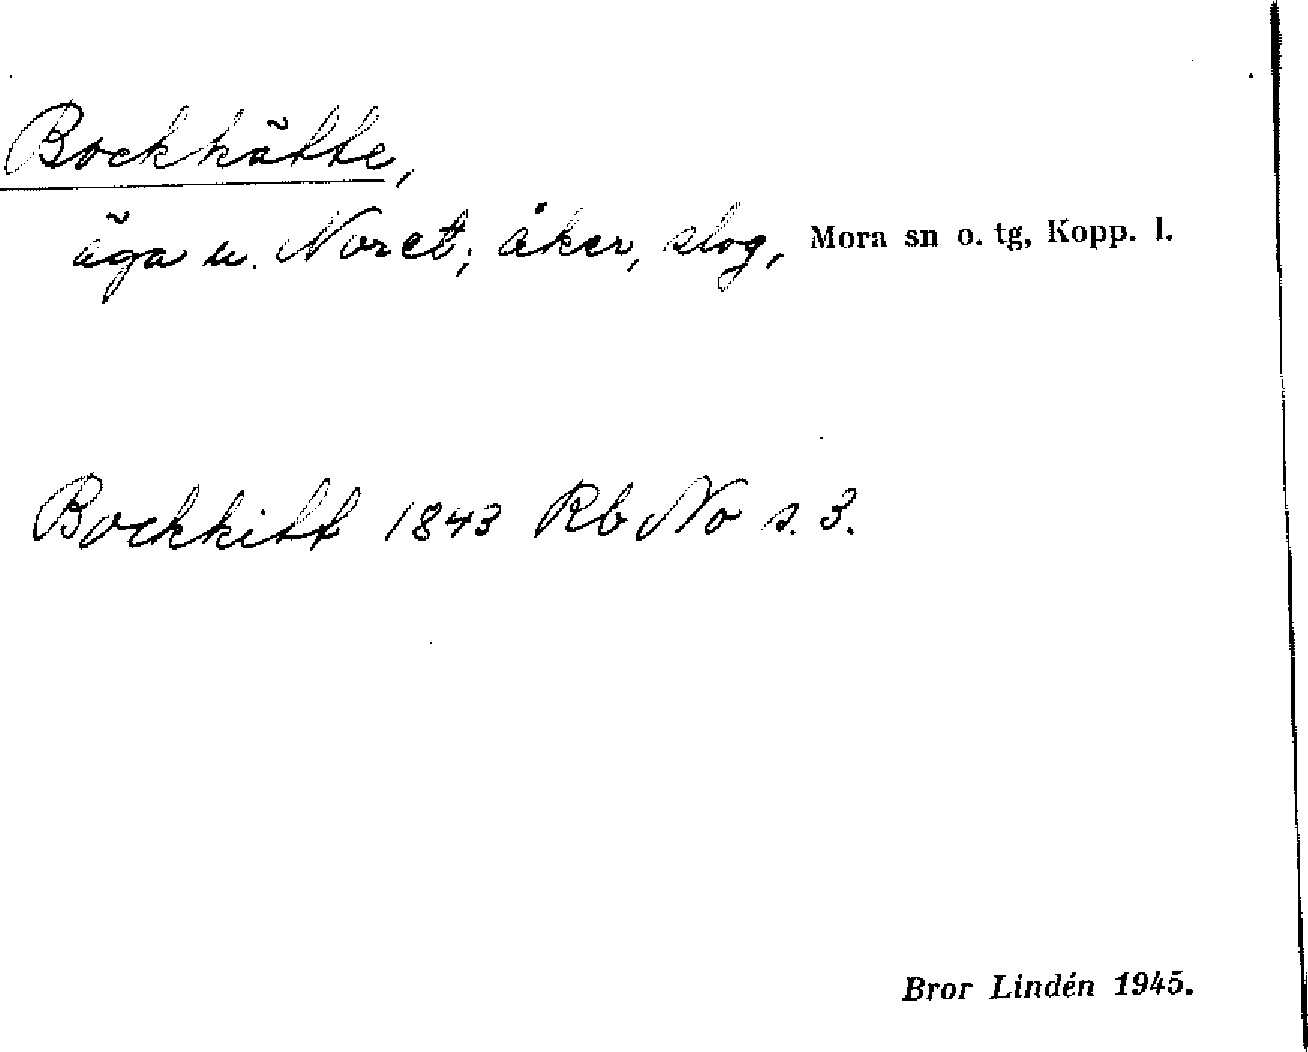 Bockkätte,
äga u. Noret; åker, slog, Mora sn o. tg, Kopp. l.
Bockkitt 1843 Rb No s. 3.
Bror Lindén 1945.